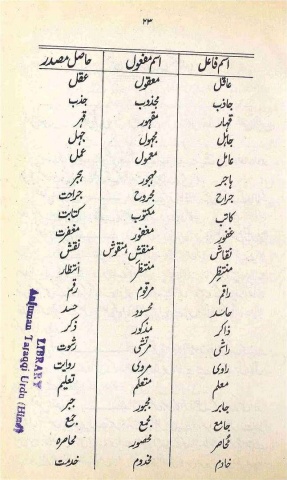 ۲۳
اسم فاعل اسم مفعول حاصل مصدر
عاقل معقول عقل
جاذب مجذوب جذب
قہار مقہور قہر
جاہل مجہول جہل
عامل معمول عمل
ہاجر مہجور ہجر
جراح مجروح جراحت
کاتب مکتوب کتابت
غفور مغفور مغفرت
نقاش منقش منقوش نقش
منتظر منتظر انتظار
راقم مرقوم رقم
حاسد محسود حسد
ذاکر مذکور ذکر
راشی مرتشی رشوت
راوی مروی روایت
معلم متعلم تعلیم
جابر مجبور جبر
جامع مجمع جمع
محاصر محصور محاصرہ
خادم مخدوم خدمت
LIBRARY
Anjuman Taraqqi Urdu (Hind)